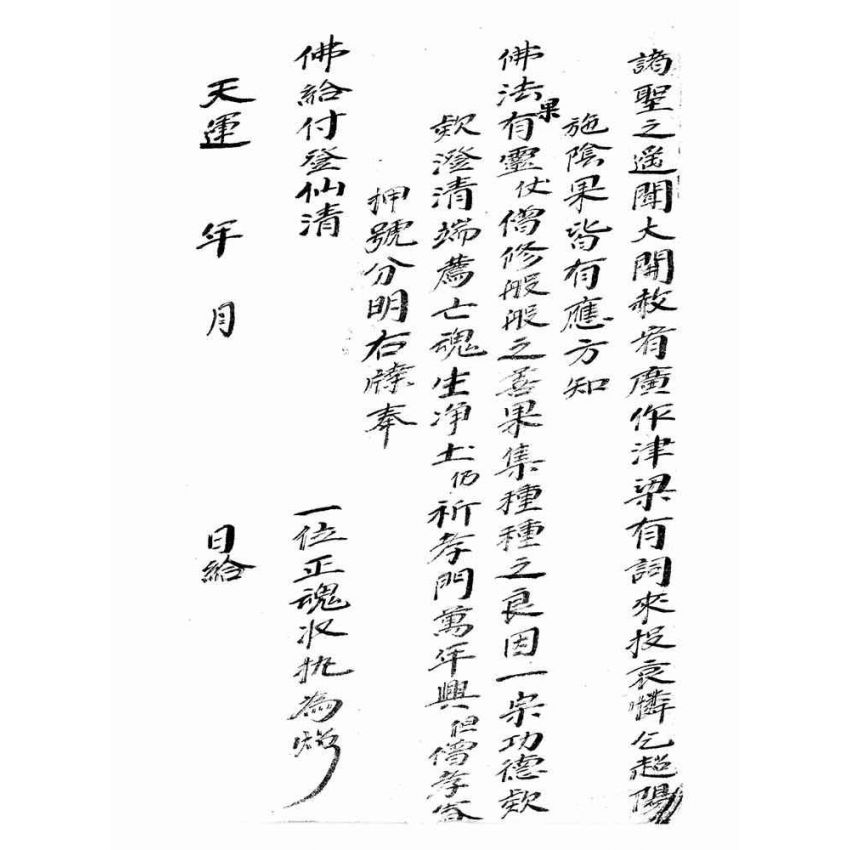 諸聖之遥聞大開赦宥廣作津梁有詞來投哀憐乞超陽
施陰果皆有應方知
佛法果有靈仗僧修般般之善果集種種之良因一宗功德欵
欵澄清端薦亡魂生净土仍祈孝門萬年興但僧孝
押號分明右牒奉
佛給付登仙清 一位正魂收執為炤
天運 年 月 日給